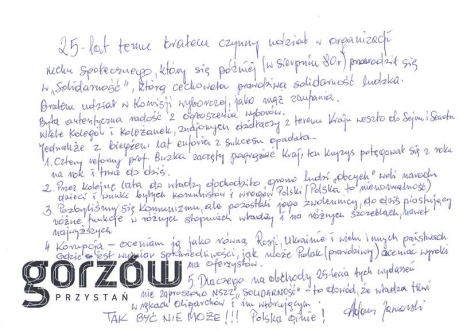 25-lat temu brałem czynny udział w organizacji
ruchu społecznego, który się później (w sierpniu 80r) przerodził się
w „Solidarność", którą cechowała prawdziwa solidarność ludzka.
Brałem udział w Komisji wyborczej, jako mąż zaufania.
Była autentyczna radość z ogłoszenia wyborów.
Wiele kolegów i koleżanek, znajomych działaczy z terenu Kraju weszło do Sejmu i Senatu
Jednakże z biegiem lat euforia z sukcesu opadała.
1. Cztery reformy prof. Buzka zaczęły pogrążać Kraj, ten kryzys potęgował się z roku
na rok i trwa do dziś.
2. Przez kolejne lata do władzy dochodziło grono ludzi „obcych" woli narodu
dzieci i wnuki byłych komunistów i wrogów Polski (Polska to nienormalność)
3. Pozbyliśmy się Komunizmu, ale pozostali jego zwolennicy, do dziś piastujący
różne funkcje w różnych stopniach władzy i na różnych szczeblach, nawet
najwyższych
4 Korupcja – oceniam ją jako równą Rosji, Ukrainie i wielu innych państwach
Gdzie jest wymiar sprawiedliwości, jak może Polak (prawdziwy) doceniać wyroki
na aferzystów.
5. Dlaczego na obchody 25-lecia tych wydarzeń
nie zaproszono NSZZ „SOLIDARNOŚĆ" – to dowód, że władza tkwi
w rękach Oligarchów i im wtórującym
TAK BYĆ NIE MOŻE!!! Polska Ginie!
Adam Janowski
gorzów
PRZYSTAŃ